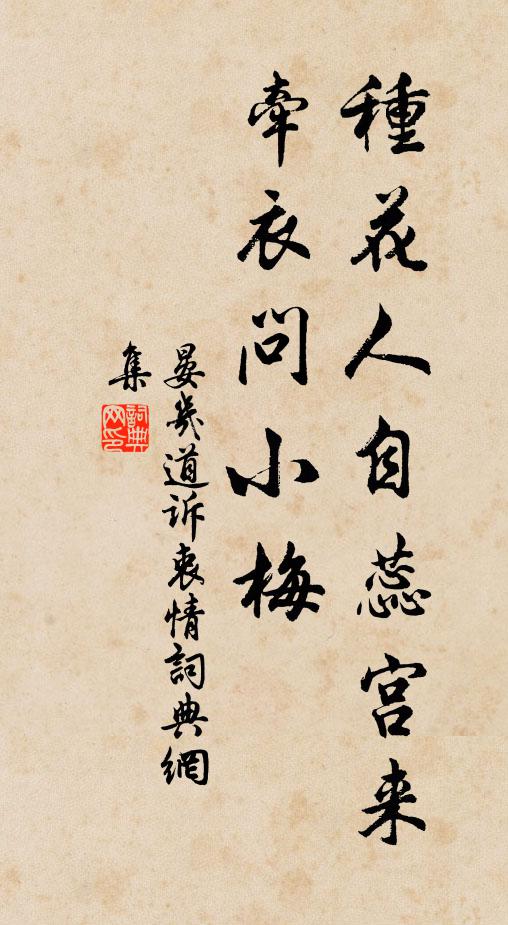 種花人自蕊宫来
牵衣问小梅
晏幾道訴衷情詞典網
集
詞典网印